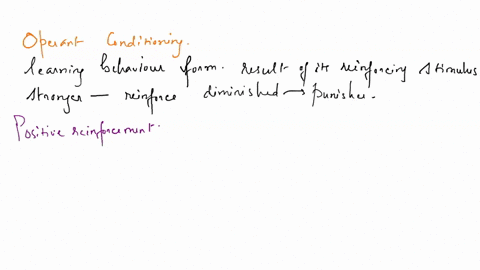 Operant Conditioning.
learning behaviour form. result of its reinforcing stimulus
stronger — reinforce diminished → punisher.
Positive reinforcement.